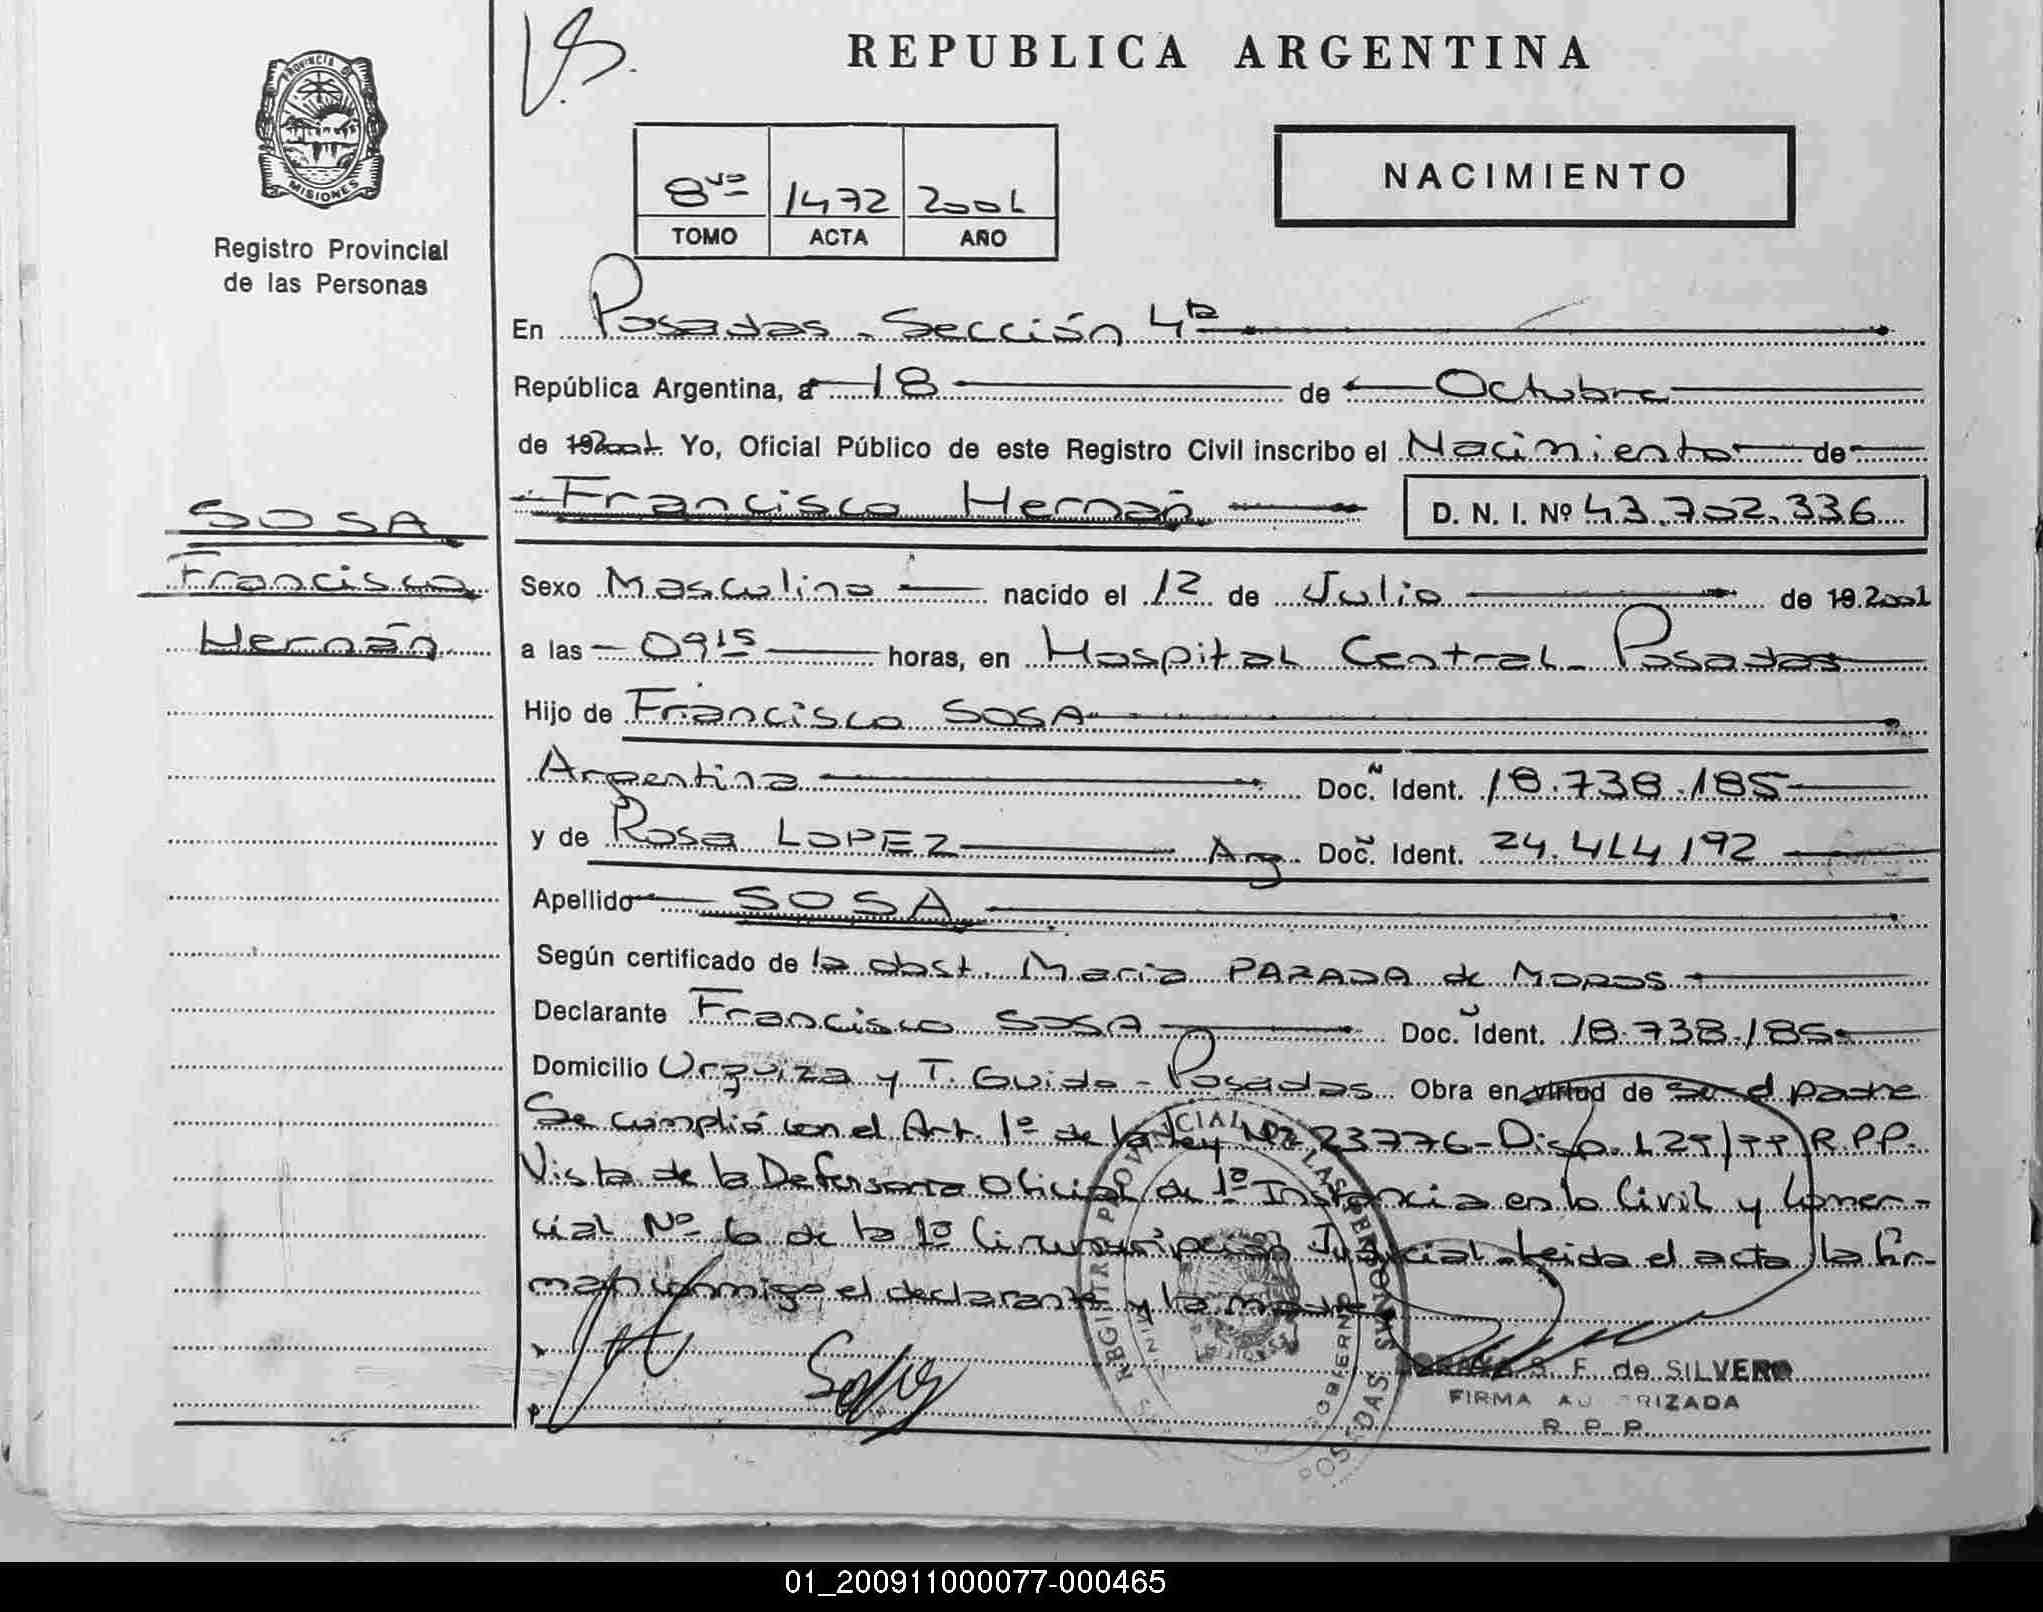 V.S.
REPUBLICA ARGENTINA
PROVINCIA DE
MISIONES
Registro Provincial
de las Personas
8vo 1472 2001
TOMO ACTA AÑO
NACIMIENTO
En Posadas - Sección 4ta
República Argentina, a 18 de Octubre
de 192001. Yo, Oficial Público de este Registro Civil inscribo el Nacimiento de
Francisco Hernán D. N. I. Nº 43.702.336
SOSA
Francisco
Hernán
Sexo Masculino nacido el 12 de Julio de 19.2001
a las 0915 horas, en Hospital Central - Posadas
Hijo de Francisco SOSA
Argentina Doc. Ident. 18.738.185
y de Rosa LOPEZ Arg. Doc. Ident.
Apellido SOSA
Según certificado de la obst. Maria PARADA de
Declarante Francisco SOSA Doc. Ident. 18.738.185
Domicilio Urquiza y T. Guido - Posadas Obra en virtud de ser el padre
Se cumplió con el Art. 1º de la ley Nº 23776 - Disp. 129/99 R.P.P.
Vista de la Defensoria Oficial de 1º Instancia en lo Civil y Comer-
cial Nº 6 de la 1º Circunscripción Judicial - Leida el acta la fir-
man conmigo el declarante y la madre
REGISTRO PROVINCIAL DE LAS PERSONAS
POSADAS
S. F. de SILVERO
FIRMA AUTORIZADA
R. P. P.
01_200911000077-000465